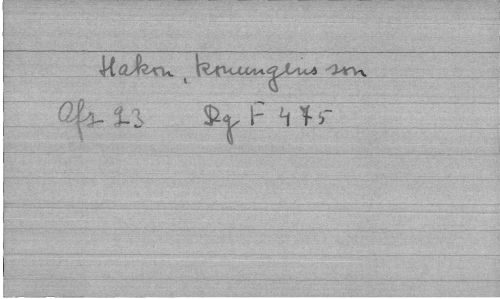 Hakon, konungens son
Afs 23 Dg F 475